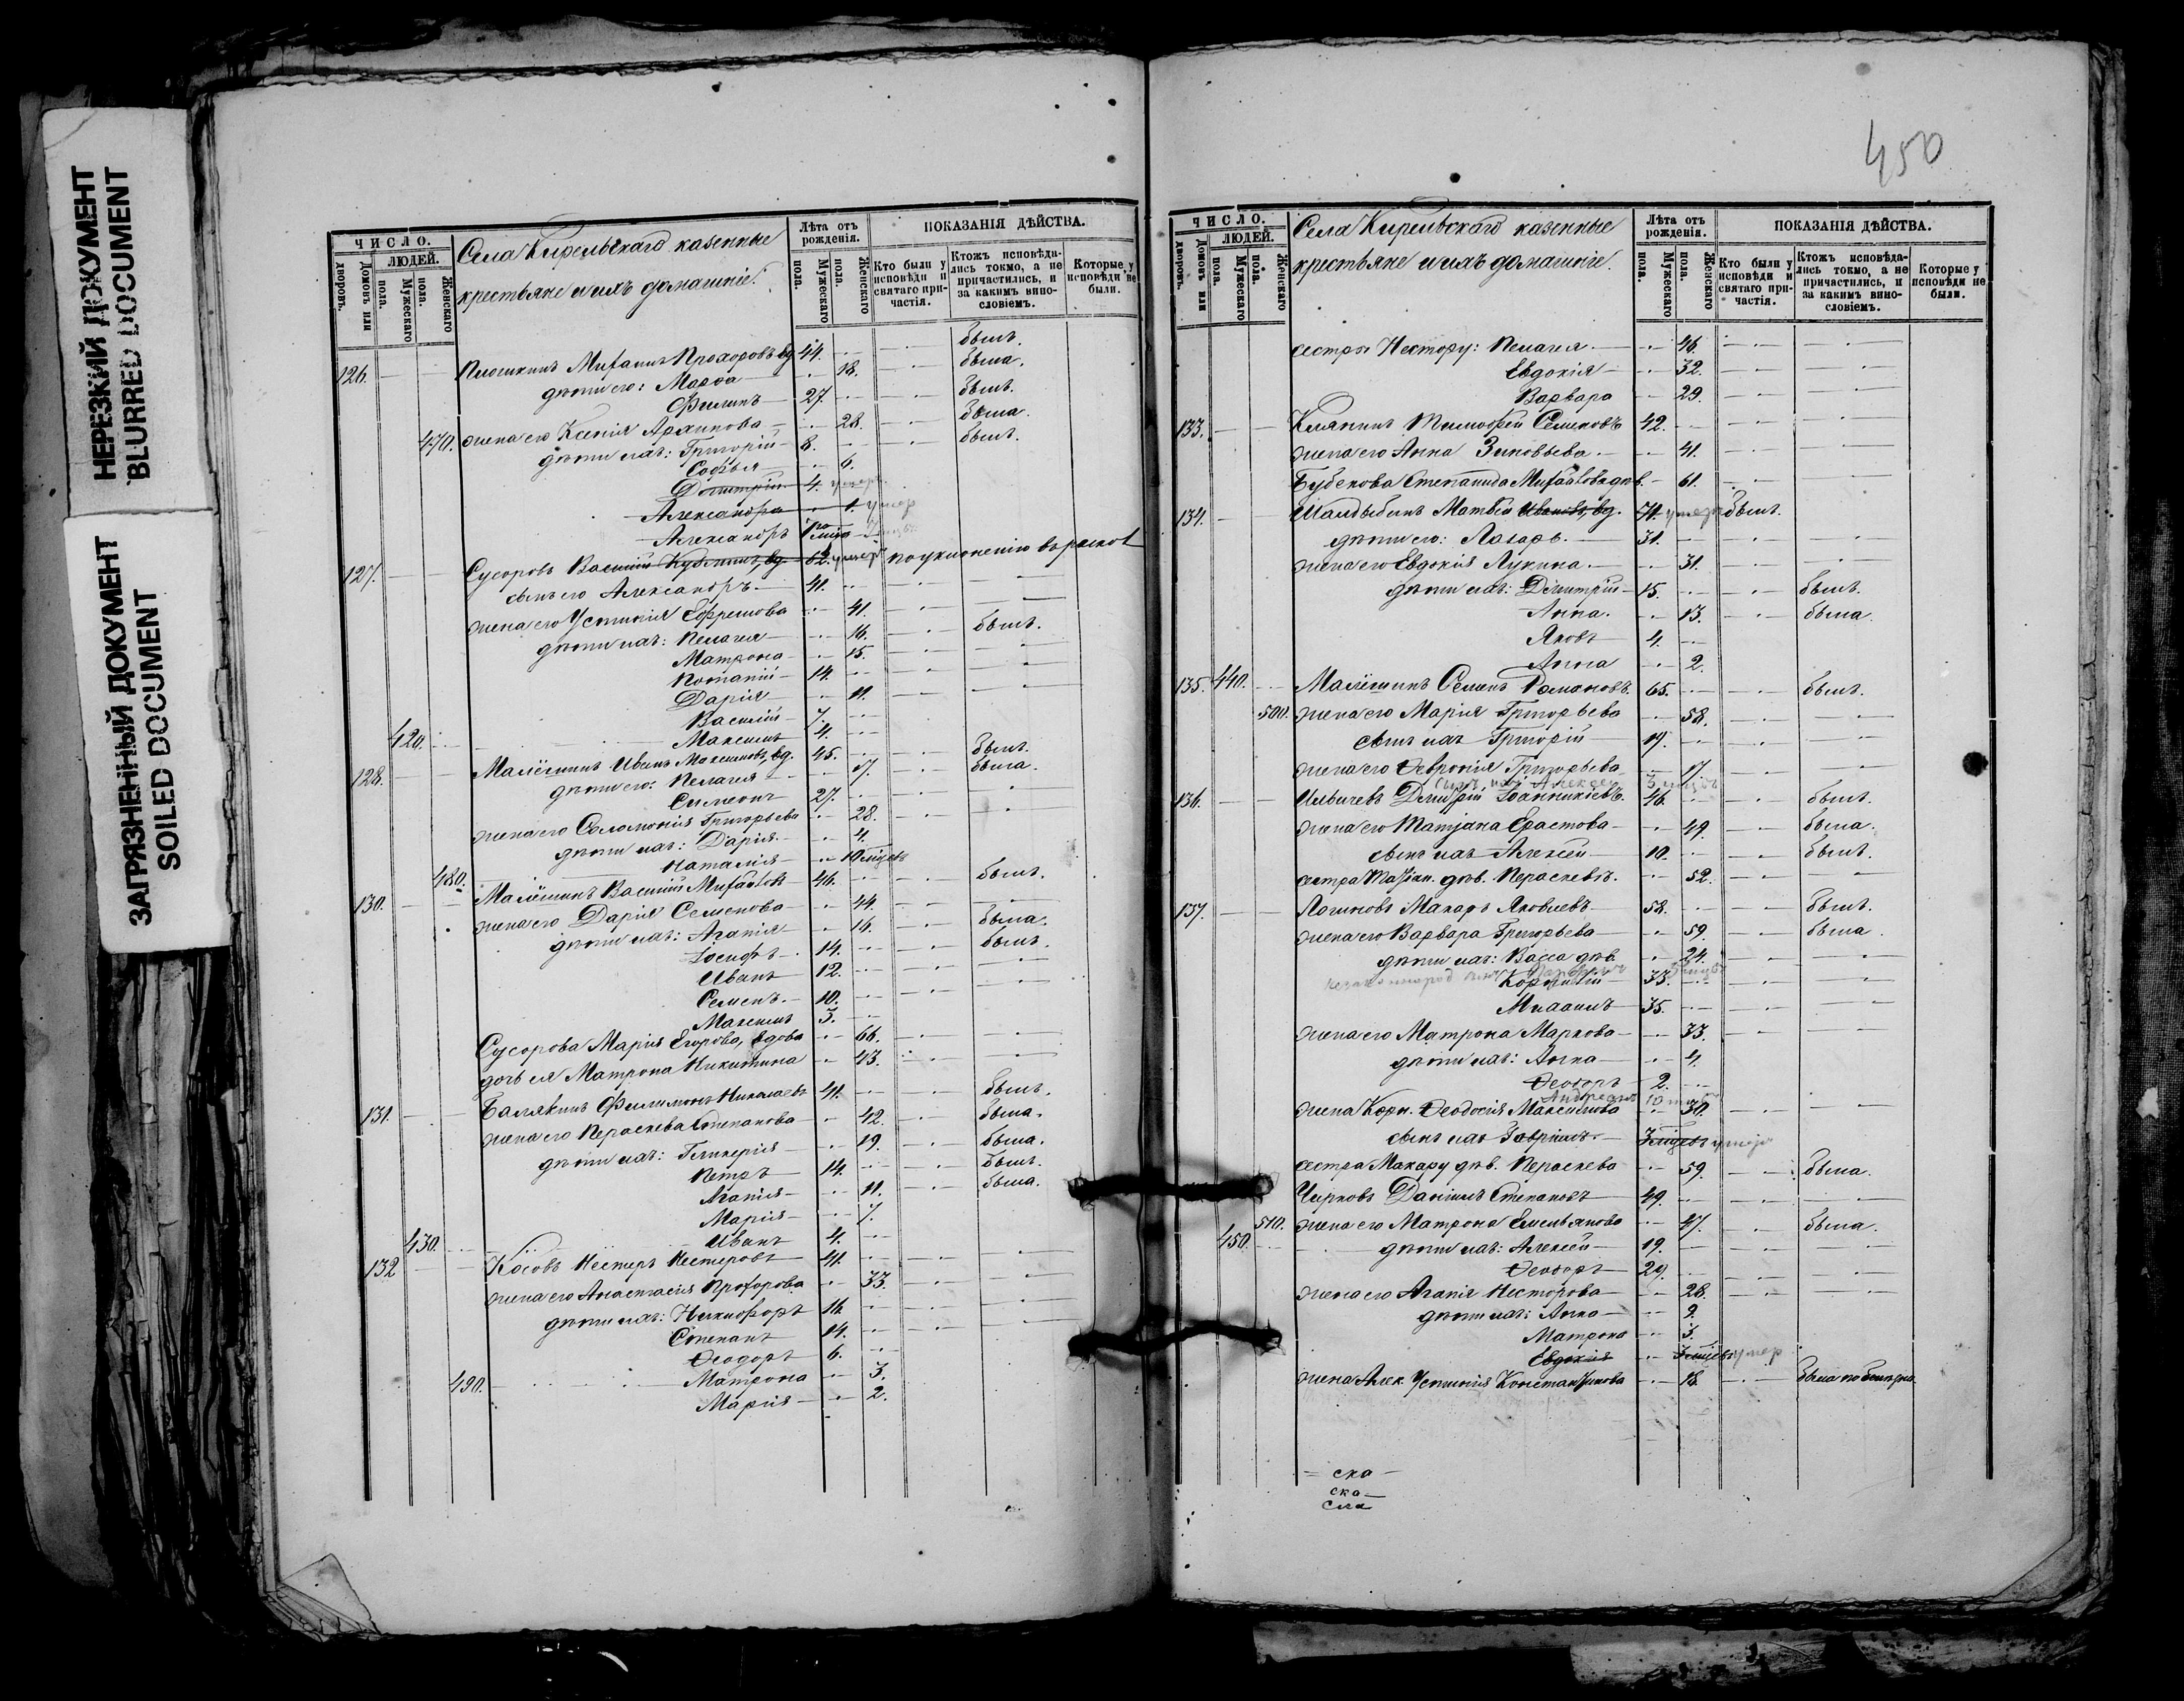 НЕРЕЗКИЙ ДОКУМЕНТ
BLURRED DOCUMENT
ЗАГРЯЗНЕННЫЙ ДОКУМЕНТ
SOILED DOCUMENT
ЧИСЛО.
Домовъ или дворовъ.
ЛЮДЕЙ.
Мужескаго пола.
Женскаго пола.
Села Киреивскаго казенные
крестьяне и ихъ домашніе.
Лѣта отъ рожденія.
Мужескаго пола.
Женскаго пола.
ПОКАЗАНІЯ ДѢЙСТВА.
Кто были у исповѣди и святаго причастія.
Ктожъ исповѣдались токмо, а не причастились, и за какимъ винословіемъ.
Которые у исповѣди не были.
126. Митанъ Прохоровъ вд. 44. былъ.
дѣти его: Марѳа 18. была.
Филипъ 27. былъ.
470. жена его Ксенія Архипова 28. была.
дѣти ихъ: Григорій 8. былъ.
Софья 6.
Димитрій 4. умеръ
Александра 1. умер
Александръ
127. Сусоровъ Василій Кузьминъ, вд. 62. умеръ по уклоненію въ раскол
сынъ его Александръ 41.
жена его Устинія Ефремова 41.
дѣти ихъ: Пелагея 16. былъ.
Матрона 15.
Потапій 14.
Дарія 11.
Василій 7.
420. Максимъ 4.
128. Малёшинъ Иванъ Максимовъ, вд. 45. былъ.
дѣти его: Пелагея 17. была.
Симеонъ 27.
жена его Соломонія Григорьева 28.
дѣти ихъ: Дарія 4.
480. Наталія 10 мцевъ
130. Малёшинъ Василій 46. былъ.
жена его Дарія Семенова 44.
дѣти ихъ: Агапія 16. была.
Іосифъ 14. былъ.
Иванъ 12.
Семенъ 10.
Максимъ 3.
Сусорова Марія Егорова, вдова 66.
дочь ея Матрона Никитина 43.
131. Балякинъ Филимонъ Николаевъ 41. былъ.
жена его Пераскева Степанова 42. была.
дѣти ихъ: Гликерія 19. была.
Петръ 14. былъ.
Агапія 11. была.
Марія 7.
430. Иванъ 4.
132 Косовъ Нестеръ Нестеровъ 41.
жена его Анастасія Прохорова 33.
дѣти ихъ: Никифоръ 16.
Степанъ 14.
Ѳеодоръ 6.
490. Матрона 3.
Марія 2.
450
ЧИСЛО.
Домовъ или дворовъ.
ЛЮДЕЙ.
Мужескаго пола.
Женскаго пола.
Села Киреивскаго казенные
крестьяне и ихъ домашніе.
Лѣта отъ рожденія.
Мужескаго пола.
Женскаго пола.
ПОКАЗАНІЯ ДѢЙСТВА.
Кто были у исповѣди и святаго причастія.
Ктожъ исповѣдались токмо, а не причастились, и за какимъ винословіемъ.
Которые у исповѣди не были.
сестры Нестору: Пелагея 46.
Евдокія 32.
Варвара 29.
133. Клянинъ Тимофей Семеновъ 42.
жена его Анна Зиновьева 41.
Бубенова Степанида дѣв. 61.
134. Шалдыбинъ Матвѣй Ивановъ, вд. 71. умеръ былъ.
дѣти его: Лазарь 31.
жена его Евдокія Лукина 31.
дѣти ихъ: Димитрій 15. былъ.
Анна 13. была.
Яковъ 4.
Анна 2.
135. 440. Малёшинъ Семенъ Романовъ 65. былъ.
500. жена его Марія Григорьева 58.
сынъ ихъ Григорій 19.
жена его Ѳевронія Григорьева 17.
сынъ ихъ Алексей 3 мцевъ
136. Димитрій Іоанникіевъ 46. былъ.
жена его Татіана Ерастова 49. была.
сынъ ихъ Алексей 10. былъ.
сестра дѣв. Пераскева 52.
137. Логиновъ Макаръ Яковлевъ 58. былъ.
жена его Варвара Григорьева 59. была.
дѣти ихъ: Васса дѣв. 24.
Корнилій 33.
Михаилъ 35.
жена его Матрона Маркова 33.
дѣти ихъ: Анна 4.
Ѳеодоръ 2.
Андреанъ 10 мцевъ
жена Корн. Ѳеодосія Максимова 30.
сынъ ихъ Гавріилъ 3 мцевъ умеръ
сестра Макару дѣв. Пераскева 59. была.
Чирковъ Даніилъ Степановъ 49.
510. жена его Матрона Емельянова 47. была.
450. дѣти ихъ: Алексей 19.
Ѳеодоръ 29.
жена его Агапія Несторова 28.
дѣти ихъ: Анна 9.
Матрона 3.
Евдокія умер
жена Алек. Устинія Константинова 18.
ска
ска
сла